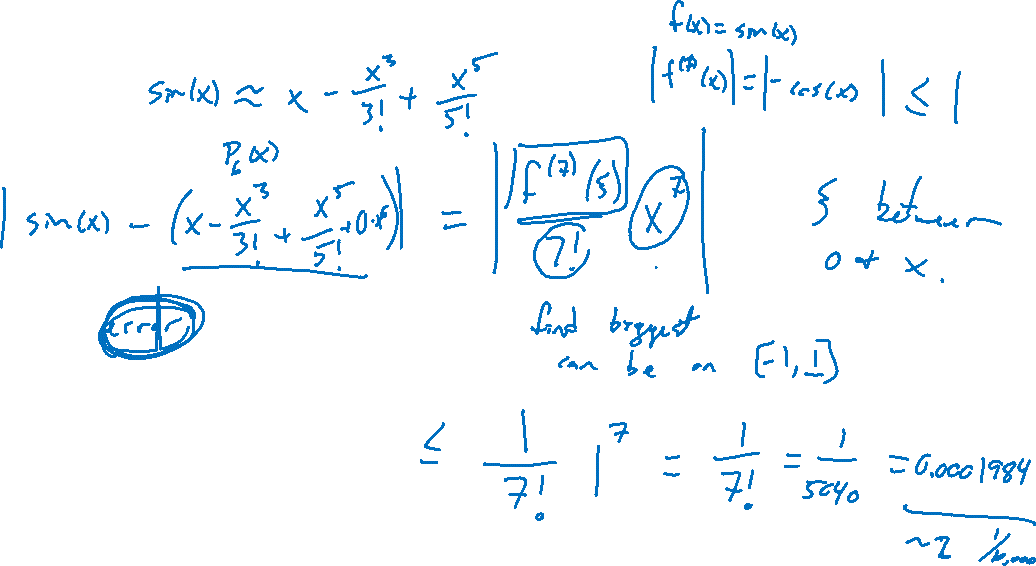 f(x) = sin(x)
sin(x) ≈ x - x³/3! + x⁵/5!
|f⁽⁷⁾(x)| = |-cos(x)| ≤ 1
P₆(x)
|sin(x) - (x - x³/3! + x⁵/5! + 0·x⁶)| = |f⁽⁷⁾(ξ)/7! x⁷|
ξ between
0 & x.
error
find biggest
can be on [-1, 1]
≤ 1/7! 1⁷ = 1/7! = 1/5040 = 0.0001984
~2 1/10,000